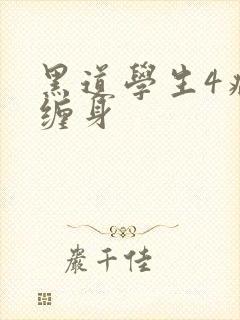 黑道學生4
缠身
嚴千佳